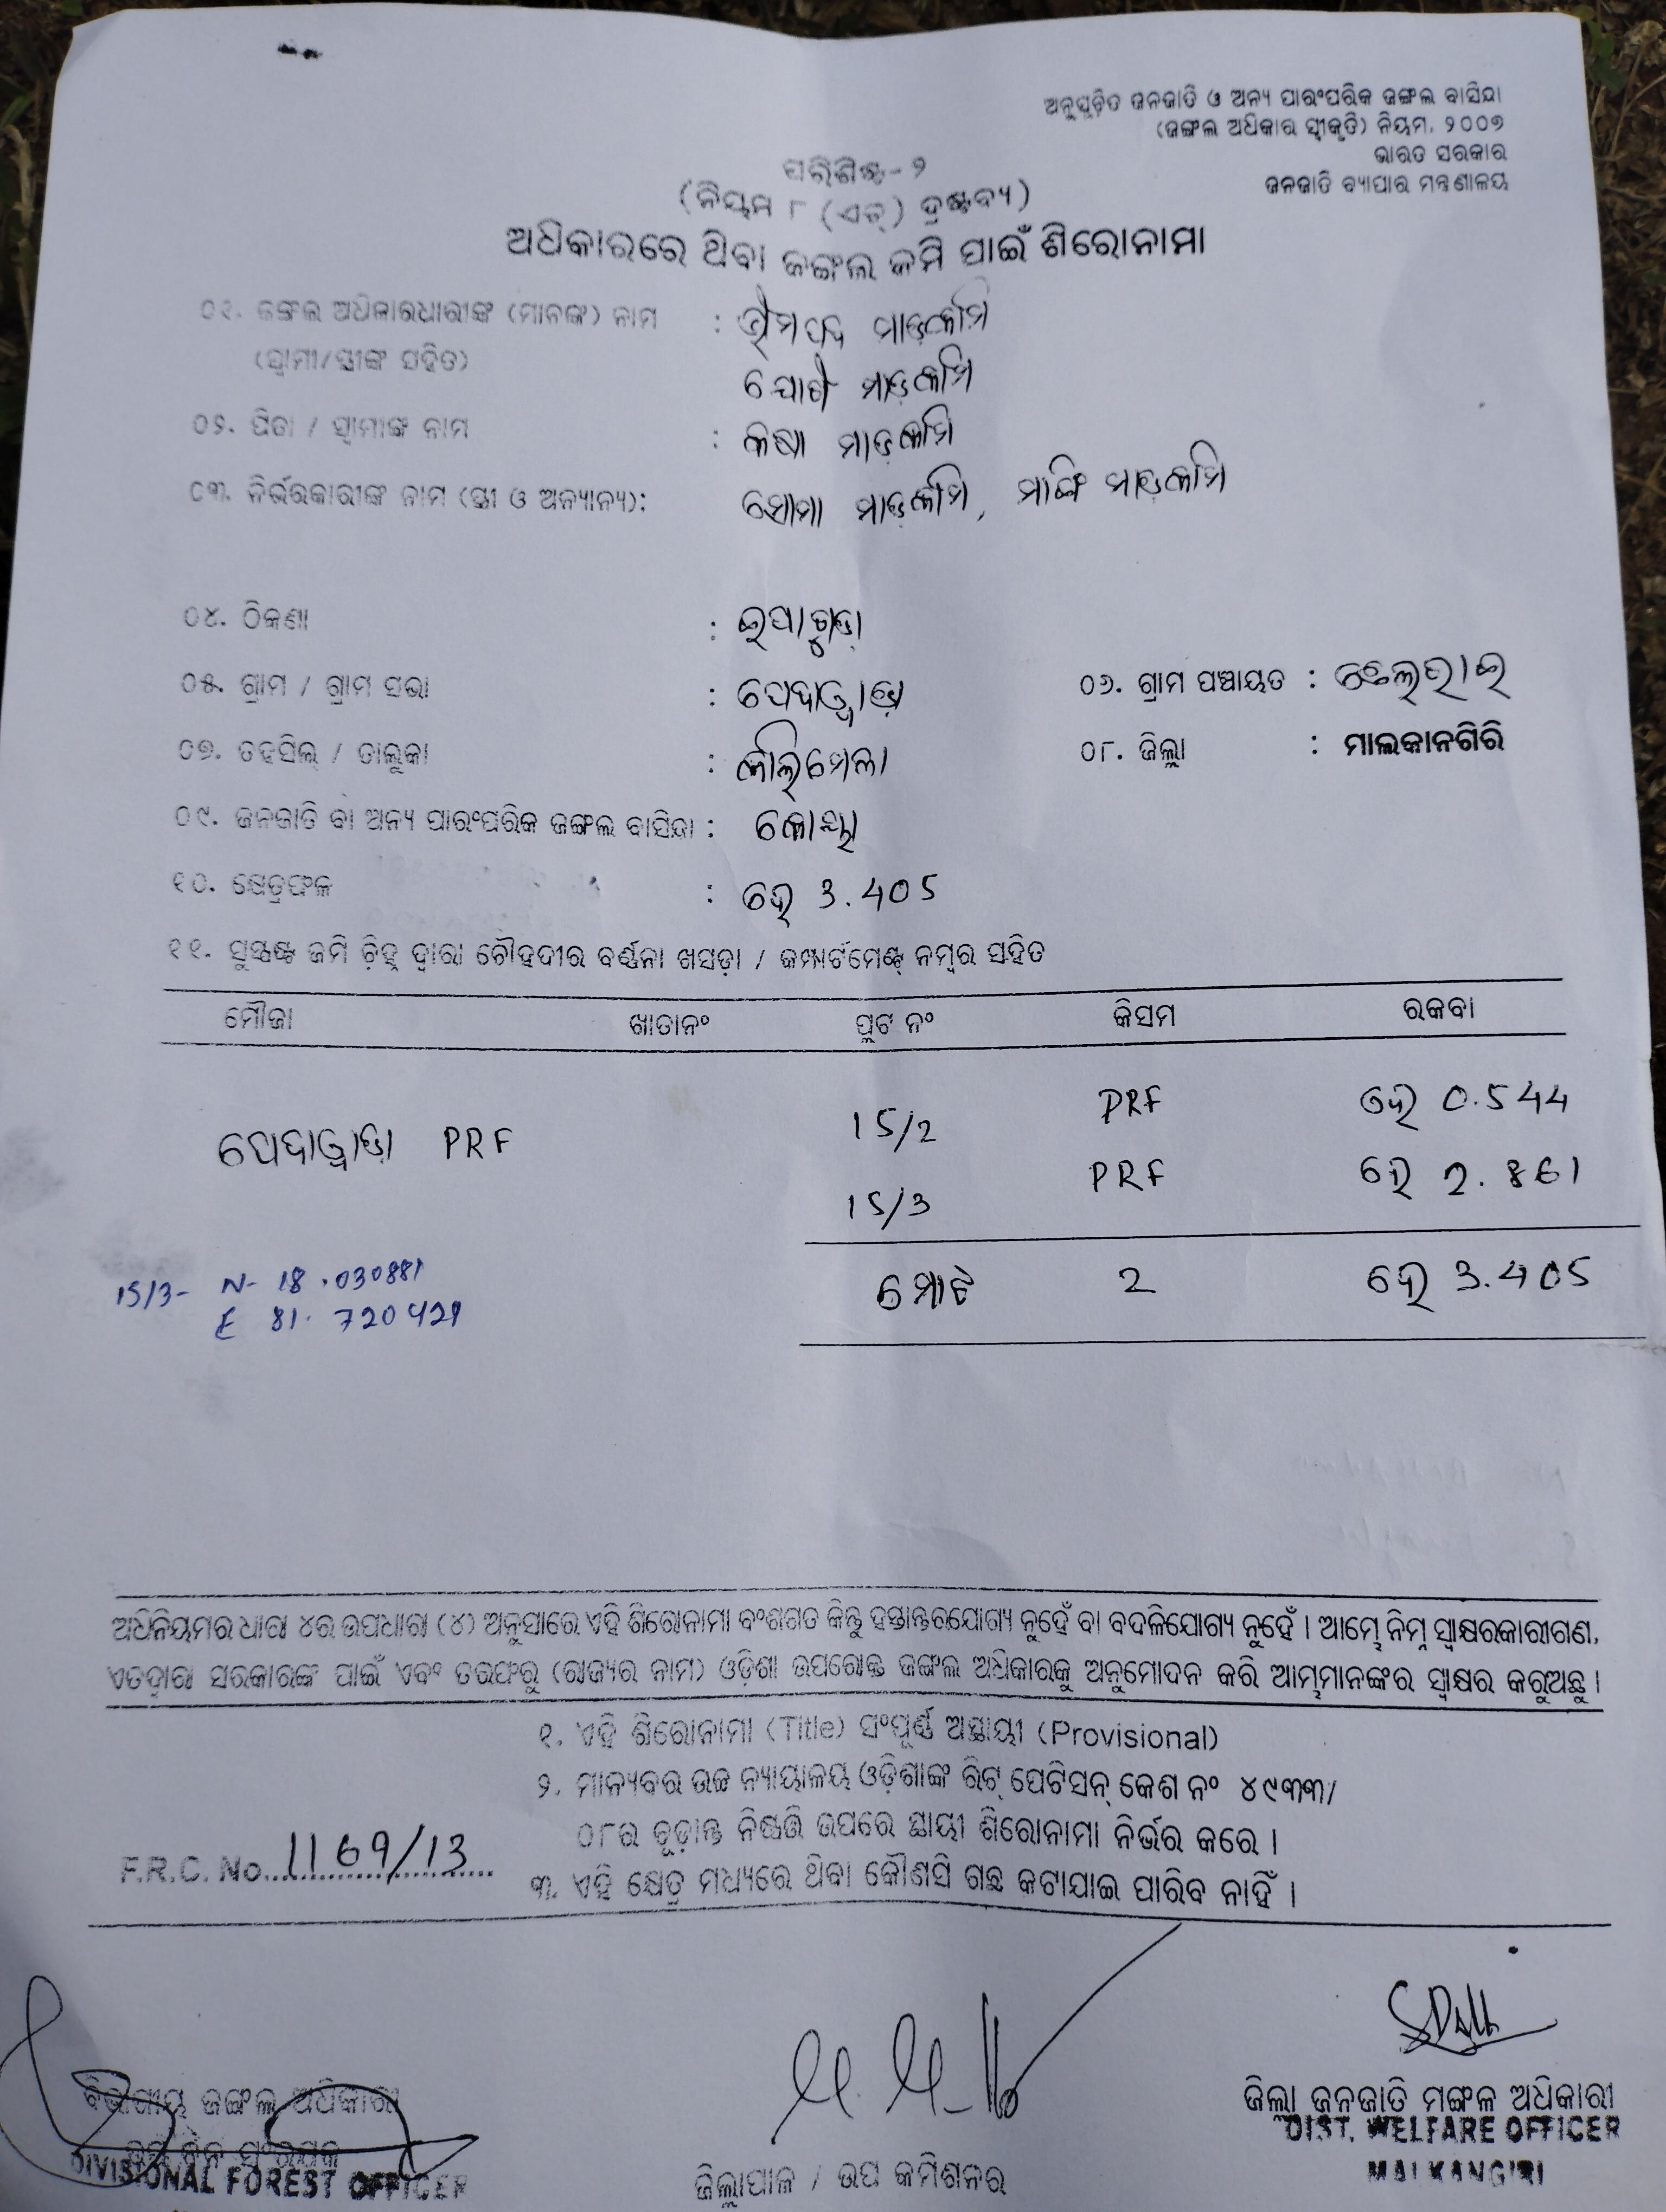 ଅନୁସୂଚିତ ଜନଜାତି ଓ ଅନ୍ୟ ପାରଂପରିକ ଜଙ୍ଗଲ ବାସିନ୍ଦା
(ଜଙ୍ଗଲ ଅଧିକାର ସ୍ୱୀକୃତି) ନିୟମ, ୨୦୦୭
ଭାରତ ସରକାର
ଜନଜାତି ବ୍ୟାପାର ମନ୍ତ୍ରଣାଳୟ
ପରିଶିଷ୍ଟ-୨
(ନିୟମ ୮ (ଏଚ୍) ଦ୍ରଷ୍ଟବ୍ୟ)
ଅଧିକାରରେ ଥିବା ଜଙ୍ଗଲ ଜମି ପାଇଁ ଶିରୋନାମା
୦୧. ଜଙ୍ଗଲ ଅଧିକାରଧାରୀଙ୍କ (ମାନଙ୍କ) ନାମ : ମାଡ଼କାମି
(ସ୍ୱାମୀ/ସ୍ତ୍ରୀଙ୍କ ସହିତ) ମାଡ଼କାମି
୦୨. ପିତା / ସ୍ୱାମୀଙ୍କ ନାମ : ମାଡ଼କାମି
୦୩. ନିର୍ଭରକାରୀଙ୍କ ନାମ (ସ୍ତ୍ରୀ ଓ ଅନ୍ୟାନ୍ୟ): ସୋମା ମାଡ଼କାମି, ମାଡ଼କାମି
୦୪. ଠିକଣା :
୦୫. ଗ୍ରାମ / ଗ୍ରାମ ସଭା : ପେଦାୱାଡା ୦୬. ଗ୍ରାମ ପଞ୍ଚାୟତ :
୦୭. ତହସିଲ୍ / ତାଲୁକା : କାଲିମେଳା ୦୮. ଜିଲ୍ଲା : ମାଲକାନଗିରି
୦୯. ଜନଜାତି ବା ଅନ୍ୟ ପାରଂପରିକ ଜଙ୍ଗଲ ବାସିନ୍ଦା : କୋୟା
୧୦. କ୍ଷେତ୍ରଫଳ : ହେ 3.405
୧୧. ସୁସ୍ପଷ୍ଟ ଜମି ଚିହ୍ନ ଦ୍ୱାରା ଚୌହଦୀର ବର୍ଣ୍ଣନା ଖସଡ଼ା / କମ୍ପାର୍ଟମେଣ୍ଟ୍ ନମ୍ବର ସହିତ
ମୌଜା ଖାତାନଂ ପ୍ଲଟ ନଂ କିସମ ରକବା
ପେଦାୱାଡା PRF 15/2 PRF ହେ 0.544
15/3 PRF ହେ 2.861
15/3- N- 18.030881 ମୋଟ 2 ହେ 3.405
E 81.720421
ଅଧିନିୟମର ଧାରା ୪ର ଉପଧାରା (୪) ଅନୁସାରେ ଏହି ଶିରୋନାମା ବଂଶଗତ କିନ୍ତୁ ହସ୍ତାନ୍ତରଯୋଗ୍ୟ ନୁହେଁ ବା ବଦଳିଯୋଗ୍ୟ ନୁହେଁ । ଆମ୍ଭେ ନିମ୍ନ ସ୍ୱାକ୍ଷରକାରୀଗଣ,
ଏତଦ୍ୱାରା ସରକାରଙ୍କ ପାଇଁ ଏବଂ ତରଫରୁ (ରାଜ୍ୟର ନାମ) ଓଡ଼ିଶା ଉପରୋକ୍ତ ଜଙ୍ଗଲ ଅଧିକାରକୁ ଅନୁମୋଦନ କରି ଆମ୍ଭମାନଙ୍କର ସ୍ୱାକ୍ଷର କରୁଅଛୁ ।
୧. ଏହି ଶିରୋନାମା (Title) ସଂପୂର୍ଣ୍ଣ ଅସ୍ଥାୟୀ (Provisional)
୨. ମାନ୍ୟବର ଉଚ୍ଚ ନ୍ୟାୟାଳୟ ଓଡ଼ିଶାଙ୍କ ରିଟ୍ ପେଟିସନ୍ କେଶ ନଂ ୪୯୩୩/
୦୮ର ଚୂଡ଼ାନ୍ତ ନିଷ୍ପତ୍ତି ଉପରେ ସ୍ଥାୟୀ ଶିରୋନାମା ନିର୍ଭର କରେ ।
F.R.C. No. 1169/13
୩. ଏହି କ୍ଷେତ୍ର ମଧ୍ୟରେ ଥିବା କୌଣସି ଗଛ କଟାଯାଇ ପାରିବ ନାହିଁ ।
ବିଭାଗୀୟ ଜଙ୍ଗଲ ଅଧିକାରୀ
DIVISIONAL FOREST OFFICER
ଜିଲ୍ଲାପାଳ / ଉପ କମିଶନର
ଜିଲ୍ଲା ଜନଜାତି ମଙ୍ଗଳ ଅଧିକାରୀ
DIST. WELFARE OFFICER
MALKANGIRI